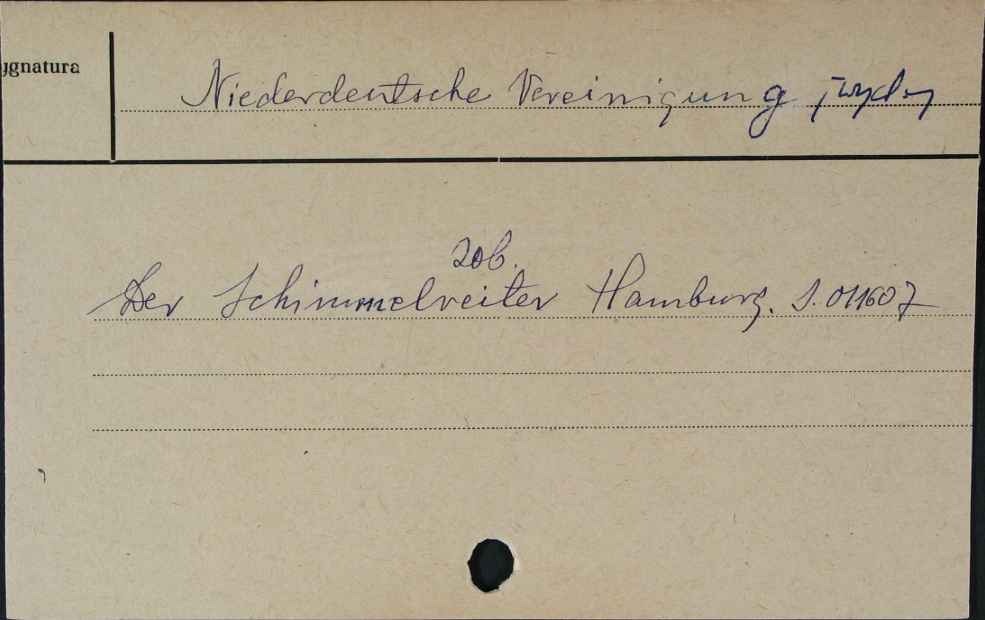 ygnatura
Niederdeutsche Vereinigung jwyd.
zob.
Der Schimmelreiter Hamburg. S. 011607